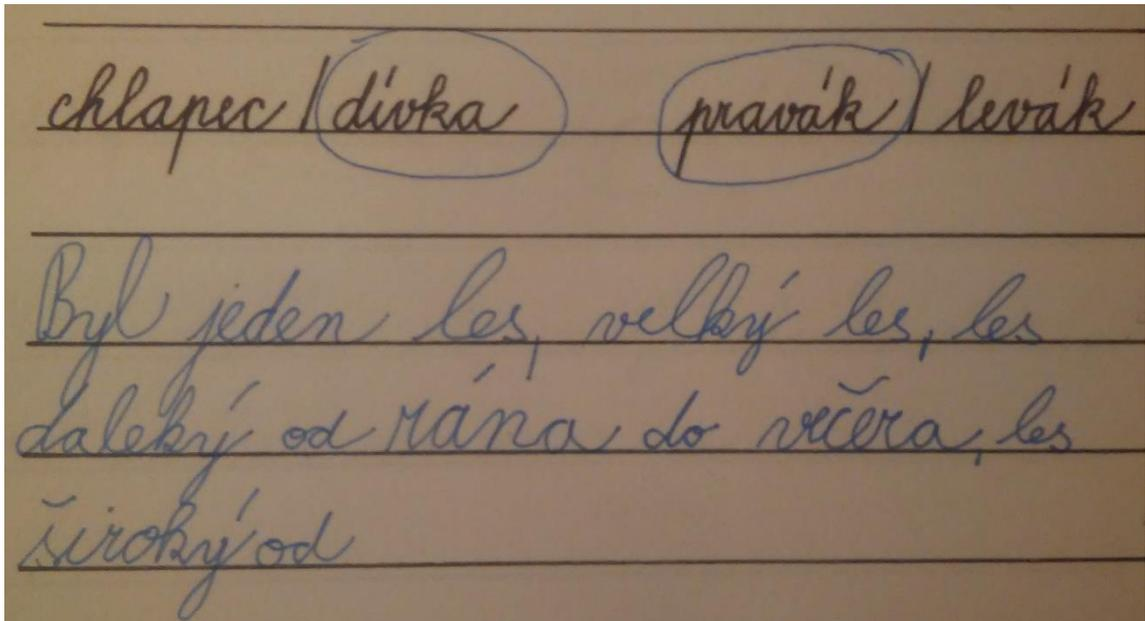 chlapec / dívka pravák / levák
Byl jeden les, velký les, les
daleký od rána do večera, les
široký od